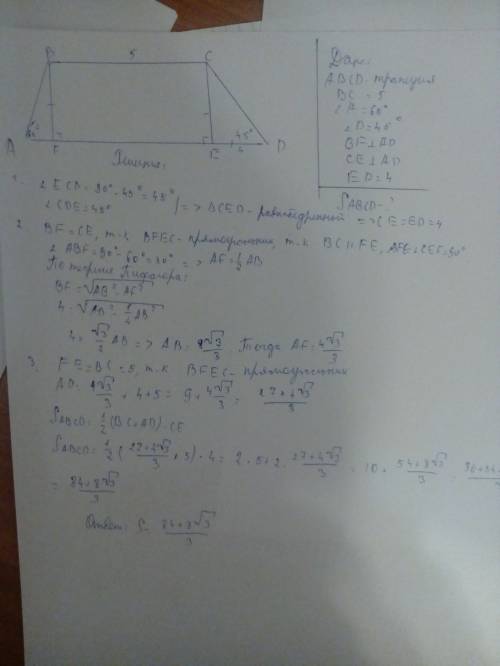 B 5 C
A 60° F E 45° 4 D
Дано:
ABCD - трапеция
BC = 5
∠A = 60°
∠D = 45°
BF ⊥ AD
CE ⊥ AD
ED = 4
SABCD - ?
Решение:
1. ∠ECD = 90° - 45° = 45°
∠CDE = 45° | => => CE = ED = 4
2. BF = CE, т.к. BFEC - прямоугольник, т.к. BC || FE,
∠ABF = 90° - 60° = 30° => AF = 1/2 AB
По теореме Пифагора:
BF = √AB² - AF²
4 = √AB² - 1/4 AB²
4 = √3/2 AB => AB = √3/3. Тогда AF = 4√3/3
3. FE = BC = 5, т.к. BFEC - прямоугольник
AD = 4√3/3 + 4 + 5 = 9 + 4√3/3 = 27+4√3/3
SABCD = 1/2 (BC + AD) · CE
SABCD = 1/2 (27+4√3/3 + 5) · 4 = 2 · 5 + 2 · 27+4√3/3 = 10 + 54+8√3/3 =
= 84+8√3/3
Ответ: S = 84+8√3/3